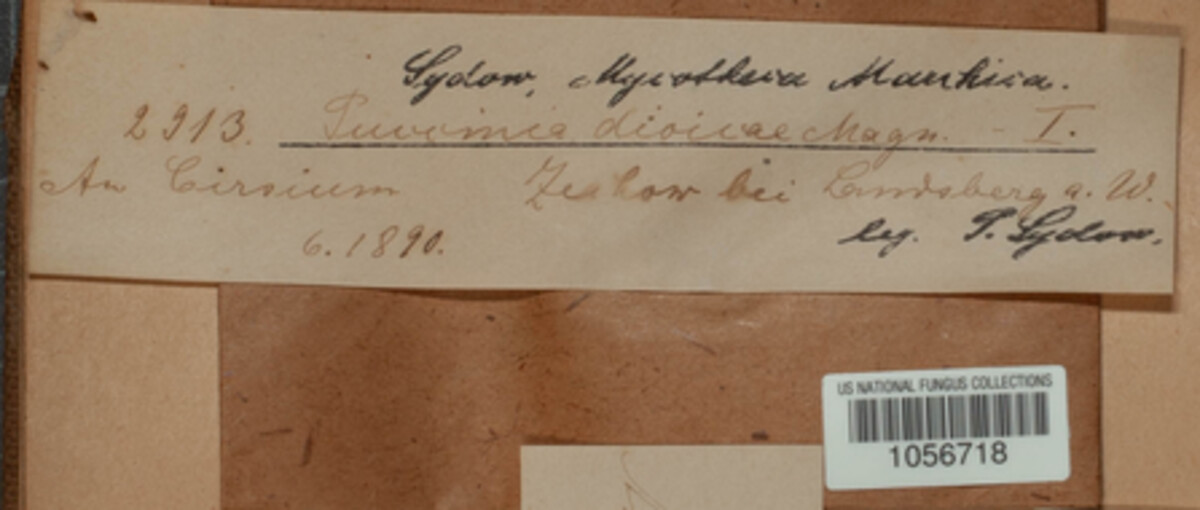 Sydow, Mycotheca Marchica.
2913. Puccinia dioicae Magn. - I.
An Cirsium Zechow bei Landsberg a. W.
6. 1890. leg. P. Sydow.
US NATIONAL FUNGUS COLLECTIONS
1056718